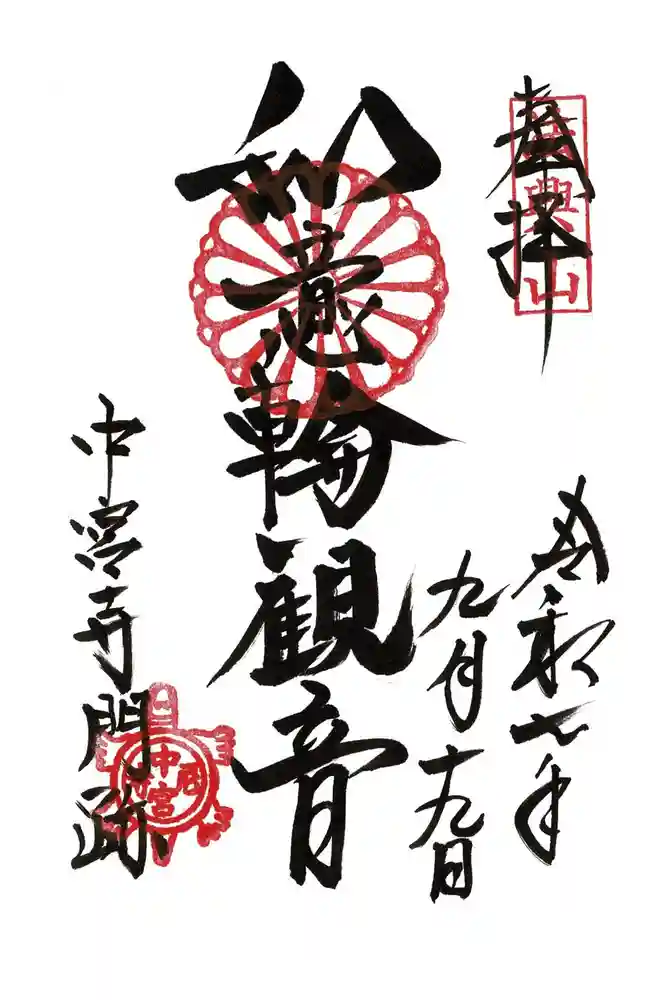 奉拝
法興山
令和七年
九月十九日
如意輪観音
中宮寺門跡
中宮